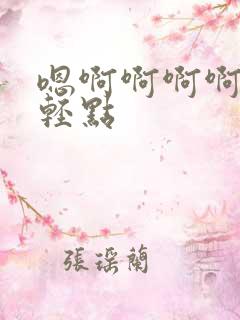 嗯啊啊啊啊
輕點
張瑶蘭